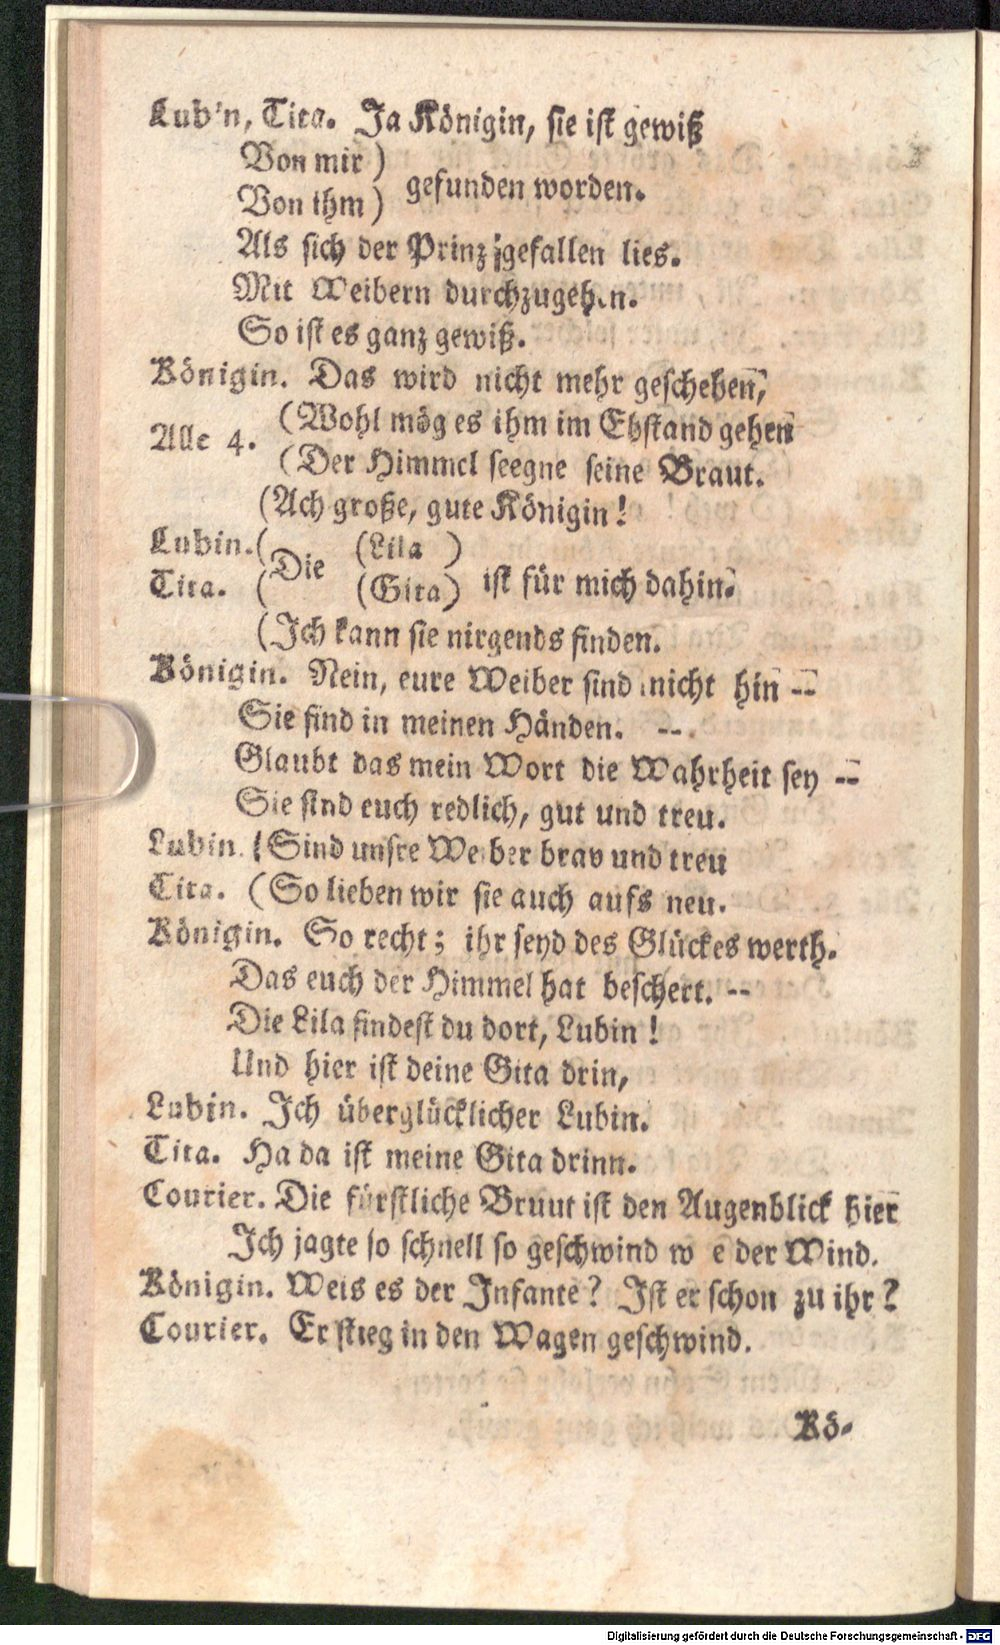 Lub'n, Tita. Ja Königin, sie ist gewiß
Von mir )
Von ihm ) gefunden worden.
Als sich der Prinz gefallen lies.
Mit Weibern durchzugeh.n.
So ist es ganz gewiß.
Königin. Das wird nicht mehr geschehen,
Alle 4. (Wohl mög es ihm im Ehstand gehen
(Der Himmel seegne seine Braut.
(Ach große, gute Königin!
Lubin. ( Die (Lila )
Tita. ( (Gita) ist für mich dahin.
(Ich kann sie nirgends finden.
Königin. Nein, eure Weiber sind nicht hin --
Sie sind in meinen Händen. --.
Glaubt das mein Wort die Wahrheit sey --
Sie sind euch redlich, gut und treu.
Lubin. (Sind unsre Weiber brav und treu
Tita. (So lieben wir sie auch aufs neu.
Königin. So recht; ihr seyd des Glückes werth.
Das euch der Himmel hat beschert. --
Die Lila findest du dort, Lubin!
Und hier ist deine Gita drin,
Lubin. Ich überglücklicher Lubin.
Tita. Ha da ist meine Gita drinn.
Courier. Die fürstliche Bruut ist den Augenblick hier
Ich jagte so schnell so geschwind w e der Wind.
Königin. Weis es der Infante? Ist er schon zu ihr?
Courier. Er stieg in den Wagen geschwind.
Kö-
Digitalisierung gefördert durch die Deutsche Forschungsgemeinschaft - DFG